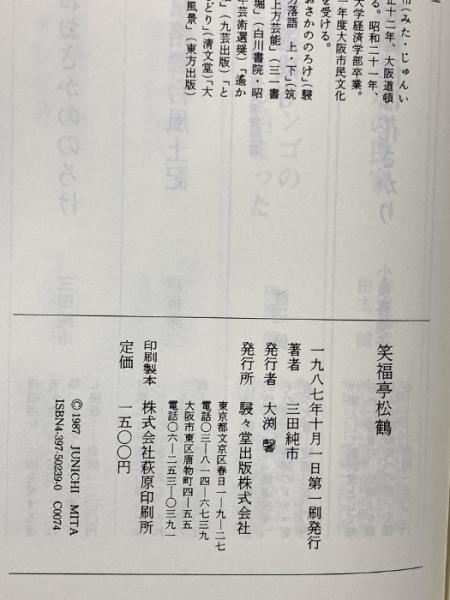 市(みた・じゅんい
正十二年、大阪道頓
る。昭和二十一年、
大学経済学部卒業。
一年度大阪市民文化
を受ける。
おさかののろけ」(駸
方落語 上・下」(筑
上方芸能」(三一書
堀」(白川書院・昭
年芸術選奨)「遙か
」(九芸出版)「と
どり」(清文堂)「大
風景」(東方出版)
笑福亭松鶴
一九八七年十月一日第一刷発行
著者 三田純市
発行者 大渕 馨
発行所 駸々堂出版株式会社
東京都文京区春日一―九―二七
電話〇三―八一四―六七三九
大阪市東区唐物町四―五五
電話〇六―二五三―〇三九一
印刷製本 株式会社萩原印刷所
定価 一五〇〇円
©1987 JUNICHI MITA
ISBN4-397-50239-0 C0074